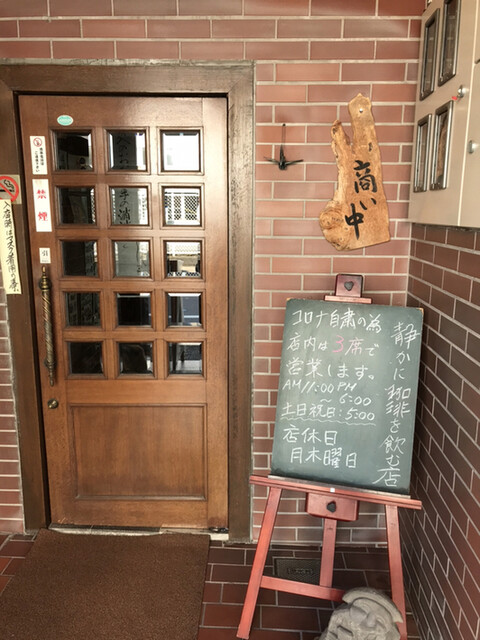 商い中
静かに珈琲を飲む店
コロナ自粛の為
店内は3席で
営業します。
AM11:00PM
～6:00
土日祝日:5:00
店休日
月木曜日
禁煙